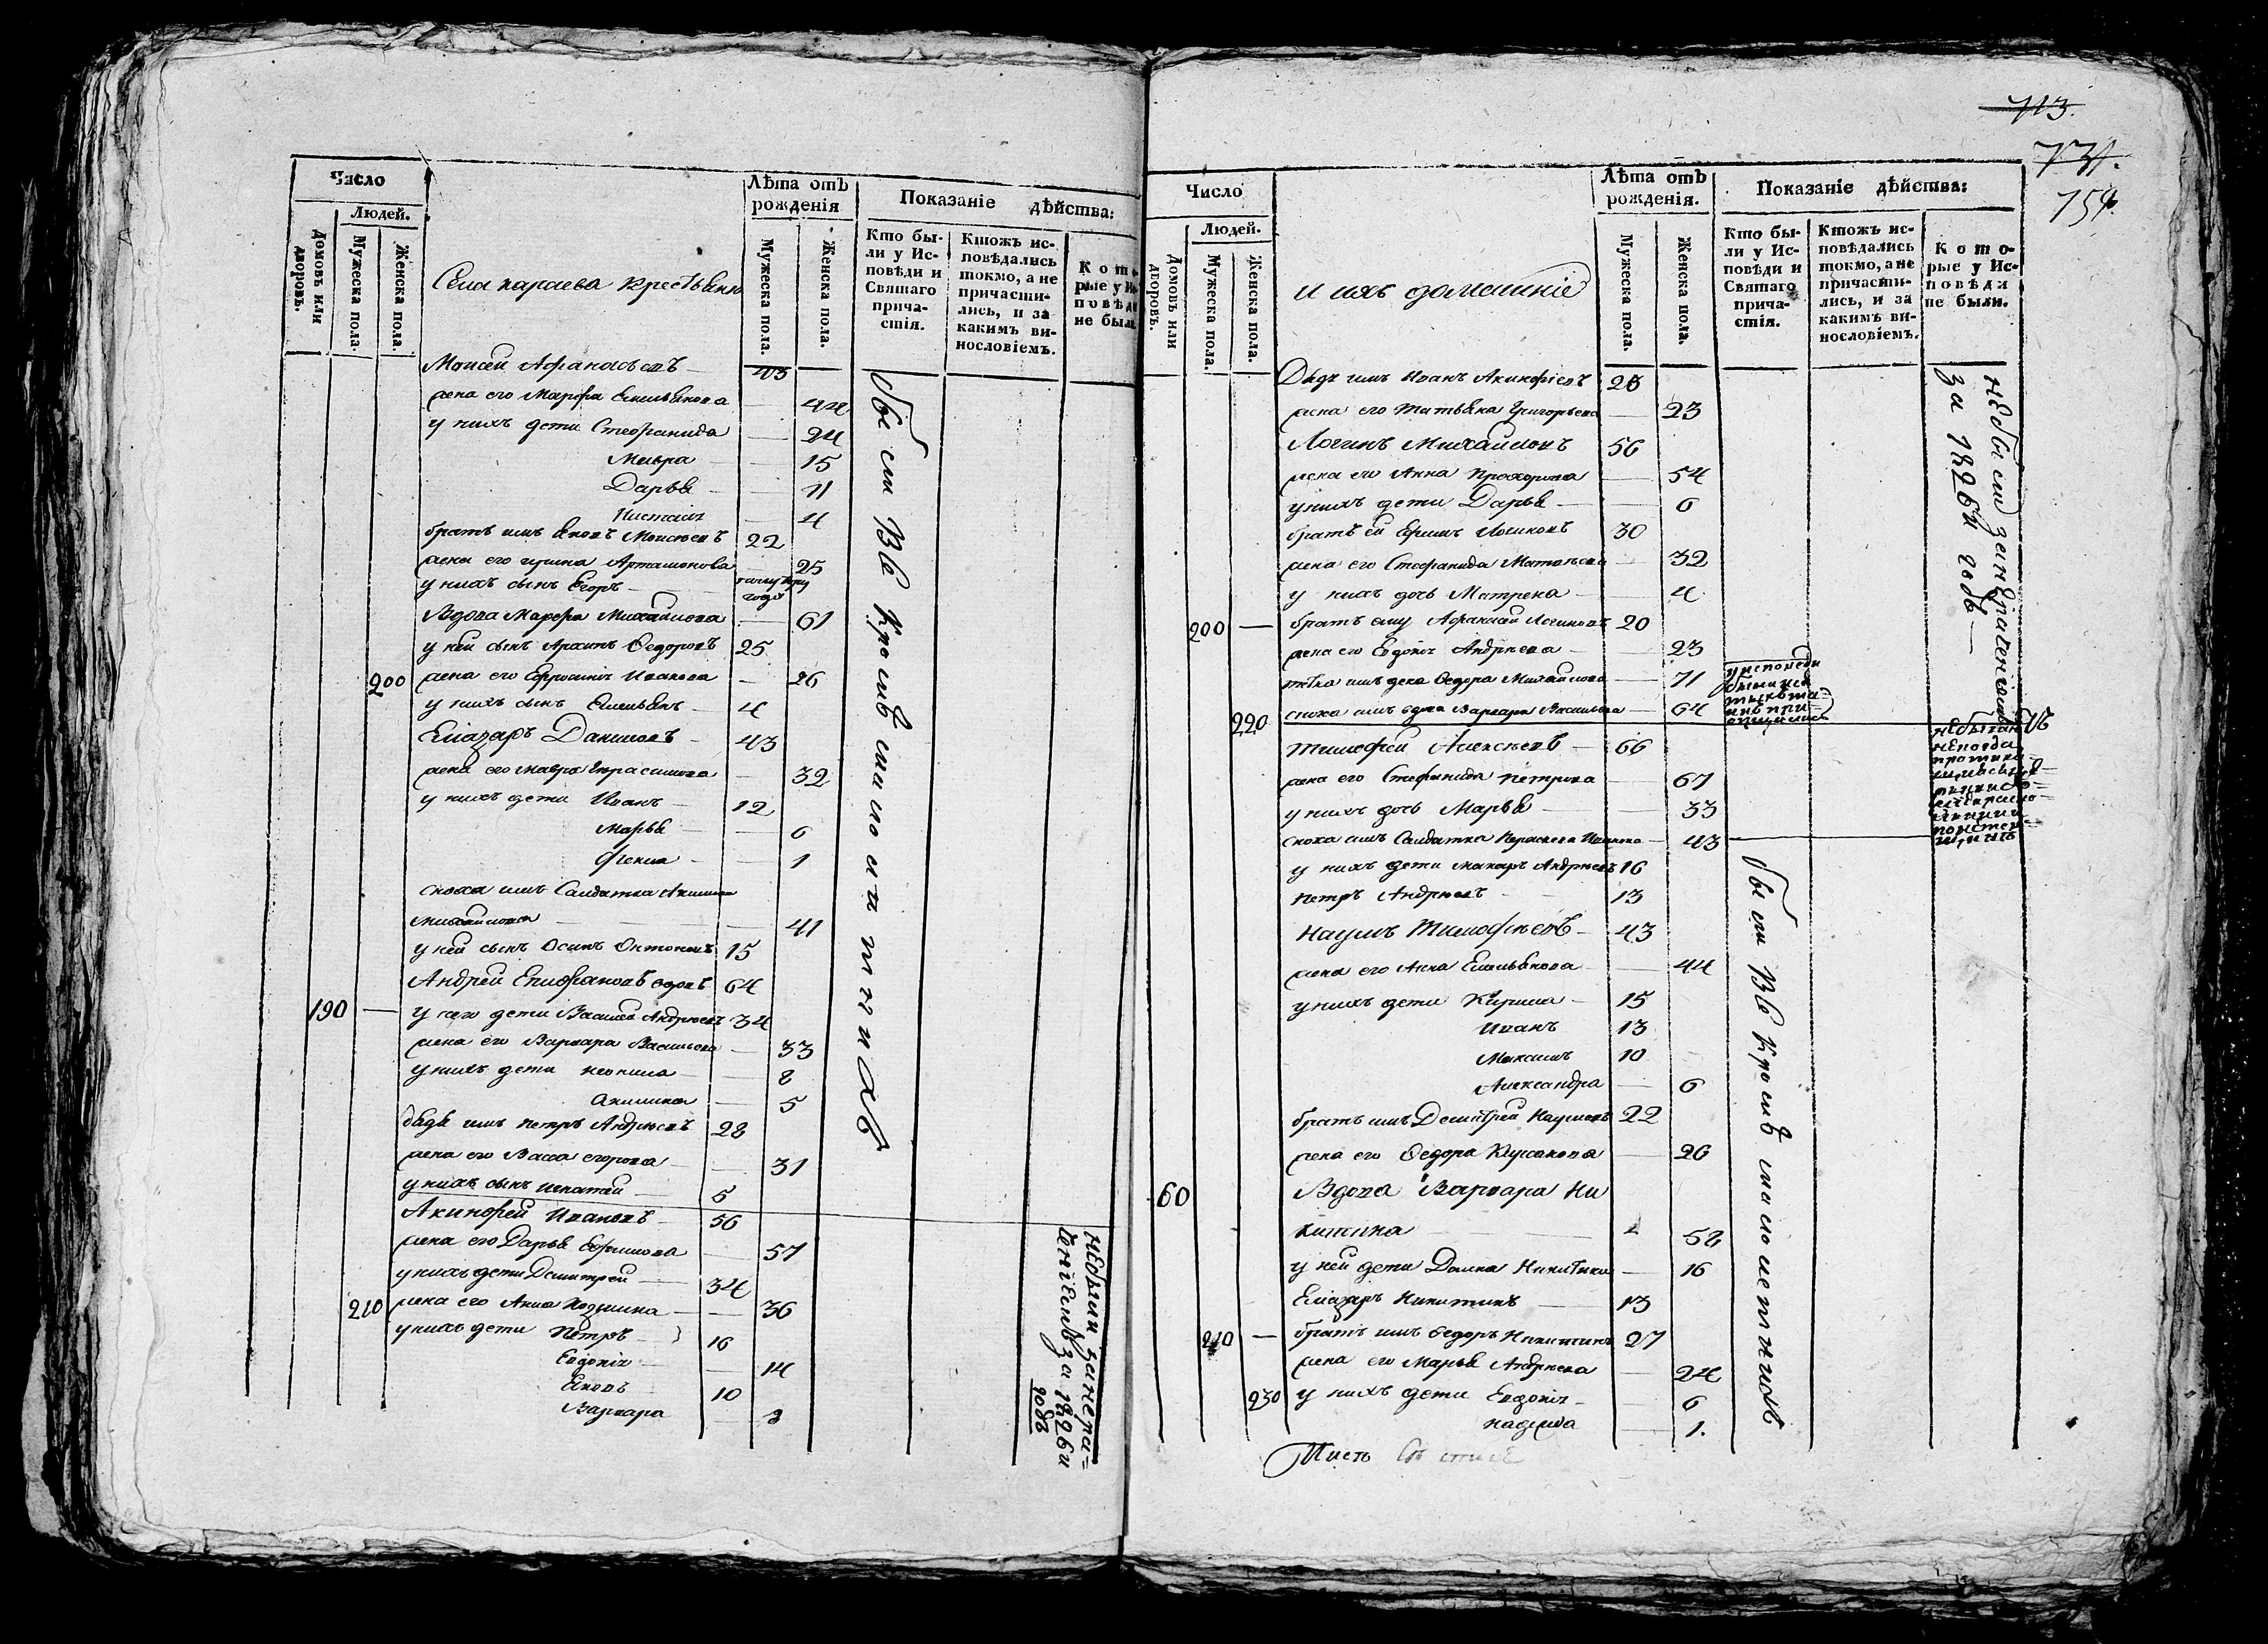 Число
Людей.
Домовъ или дворовъ.
Мужеска пола.
Женска пола.
Села караева крестьяне
Лѣта отъ рожденія
Мужеска пола.
Женска пола.
Показаніе дѣйства:
Кто бы-
ли у Ис-
повѣди и
Святаго
прича-
стія.
Ктожъ ис-
повѣдались
токмо, а не
причасти-
лись, и за
какимъ ви-
нословіемъ.
К о то-
рые у Ис-
п о в ѣ ди
не были.
Моисей Афанасьевъ 43
жена его Марфа Емельянова 44
у нихъ дети Стефанида 24
Мавра 15
Дарья 11
4
братъ имъ Яковъ Моисеевъ 22
жена его ирина Артамонова 25
у нихъ сынъ Егоръ году
Вдова Марфа Михайлова 61
у ней сынъ Архипъ Федоровъ 25
200 жена его Ефросинiя Иванова 26
у нихъ сынъ Емельянъ 4
Елiазаръ Даниловъ 43
жена его мавра Герасимова 32
у нихъ дети Иванъ 12
Марья 6
1
сноха имъ Салдатка Акилина
Михайлова 41
у ней сынъ Осипъ Онтоновъ 15
Андрей Епифановъ вдовъ 64
190 у него дети Василей Андреевъ 34
жена его Варвара Васильева 33
у нихъ дети неонила 8
акилина 5
дядя имъ петръ Андреевъ 28
жена его Васса егорова 31
у нихъ сынъ игнатей 5
Акинфей Ивановъ 56
жена его Дарья Ефимова 57
у нихъ дети Димитрей 34
210 жена его Анна Козмина 36
у нихъ дети Петръ 16
Евдокiя 14
Яковъ 10
Варвара 8
были все кроме малолетнихъ
не были за нера-
ченiемъ за 1826й
годъ
713.
731.
759.
Число
Людей.
Домовъ или дворовъ.
Мужеска пола.
Женска пола.
и ихъ домашнiе
Лѣта отъ рожденія.
Мужеска пола.
Женска пола.
Показаніе дѣйства:
Кто бы-
ли у Ис-
повѣди и
Святаго
прича-
стія.
Ктожъ ис-
повѣдались
токмо, а не
причасти-
лись, и за
какимъ ви-
нословіемъ.
К о т о-
рые у Ис-
п о в ѣ д и
не были.
Дядя имъ Иванъ Акинфiевъ 25
жена его татьяна Григорьева 23
Логинъ Михайловъ 56
жена его Анна Прохорова 54
у нихъ дети Дарья 6
братъ ей Ефимъ Логиновъ 30
жена его Стефанида Матвеева 32
у нихъ дочь Матрена 4
200 братъ ему Афанасей Логиновъ 20
жена его Евдокiя Андреева 23
тетка имъ Федора Михайлова 71
220 сноха имъ вдова Варвара Васильева 64
тимофей Алексеевъ 66
жена его Стефанида петрова 67
у нихъ дочь Марья 33
сноха имъ Салдатка Иванова 43
у нихъ дети макаръ Андреевъ 16
петръ Андреевъ 13
Наумъ Тимофеевъ 43
жена его Анна Емельянова 44
у нихъ дети Кирила 15
Иванъ 13
Максимъ 10
Александра 6
братъ имъ Димитрей Наумовъ 22
жена его Федора 26
60 Вдова Варвара Ни
китина 58
у ней дети Домна Никитина 16
Елiазаръ Никитинъ 13
210 братъ имъ Федоръ Никитинъ 27
жена его Марья Андреева 24
230 у нихъ дети Евдокiя 6
надежда 1.
не были за нераченiемъ
за 1826й годъ
были все кроме малолетнихъ